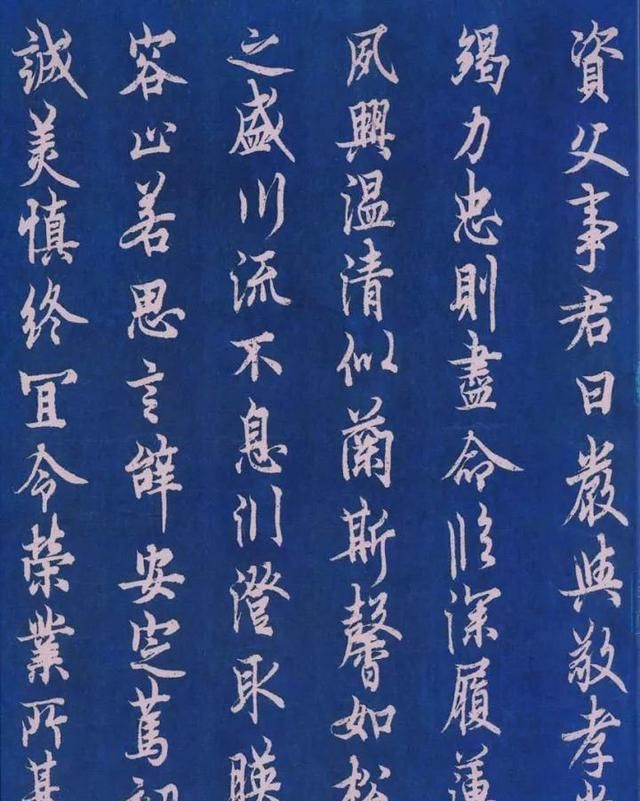 資父事君曰嚴與敬孝
竭力忠則盡命臨深履薄
夙興温清似蘭斯馨如松
之盛川流不息渊澄取暎
容止若思言辭安定篤初
誠美慎終宜令榮業所基